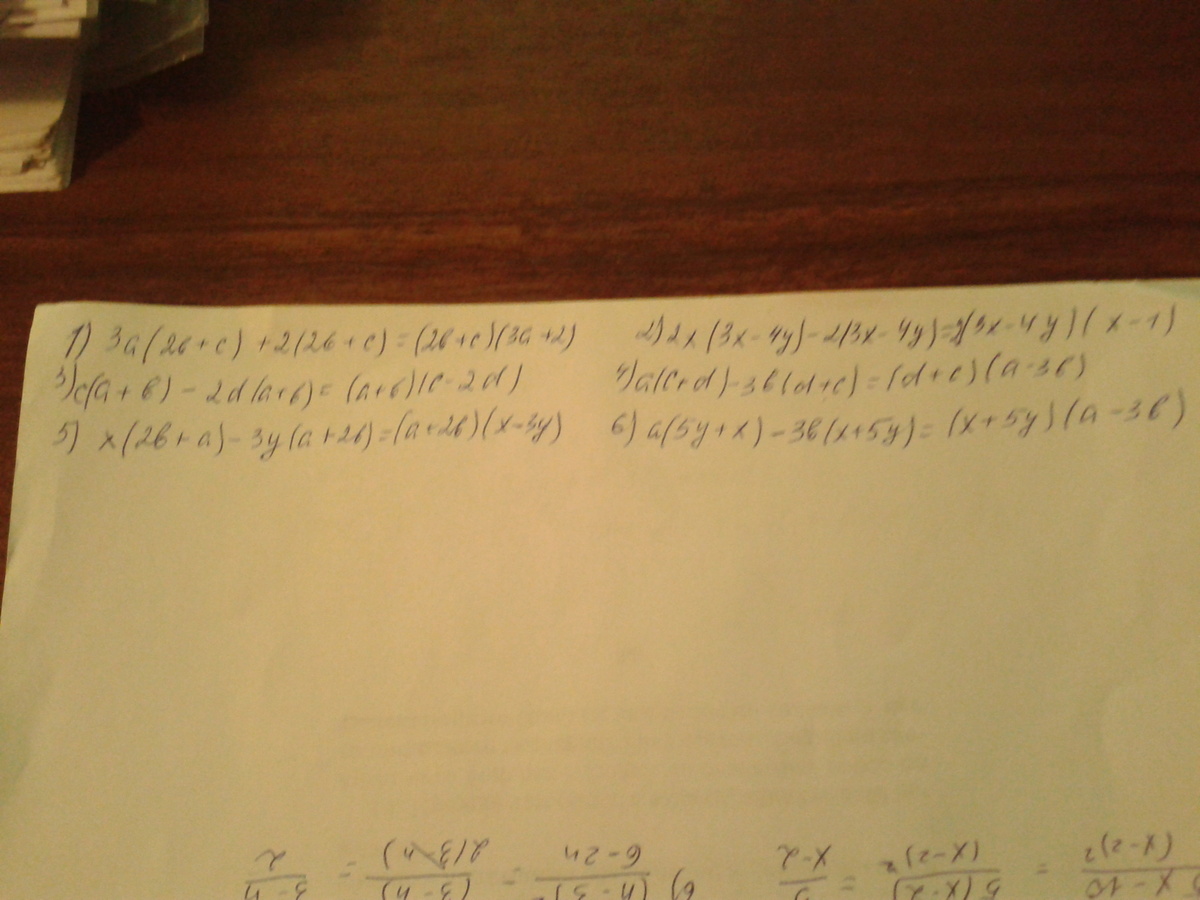 1) 3a(2b+c) + 2(2b+c) = (2b+c)(3a+2) 2) 2x(3x-4y)-2(3x-4y)=2(3x-4y)(x-1)
3) c(a+b) - 2d(a+b) = (a+b)(c-2d) 4) a(c+d)-3b(d+c) = (d+c)(a-3b)
5) x(2b+a)-3y(a+2b)=(a+2b)(x-3y) 6) a(5y+x)-3b(x+5y) = (x+5y)(a-3b)
(x-2)² = (x-2)² = x-2
6) 6-2n = 2(3-n) = 2